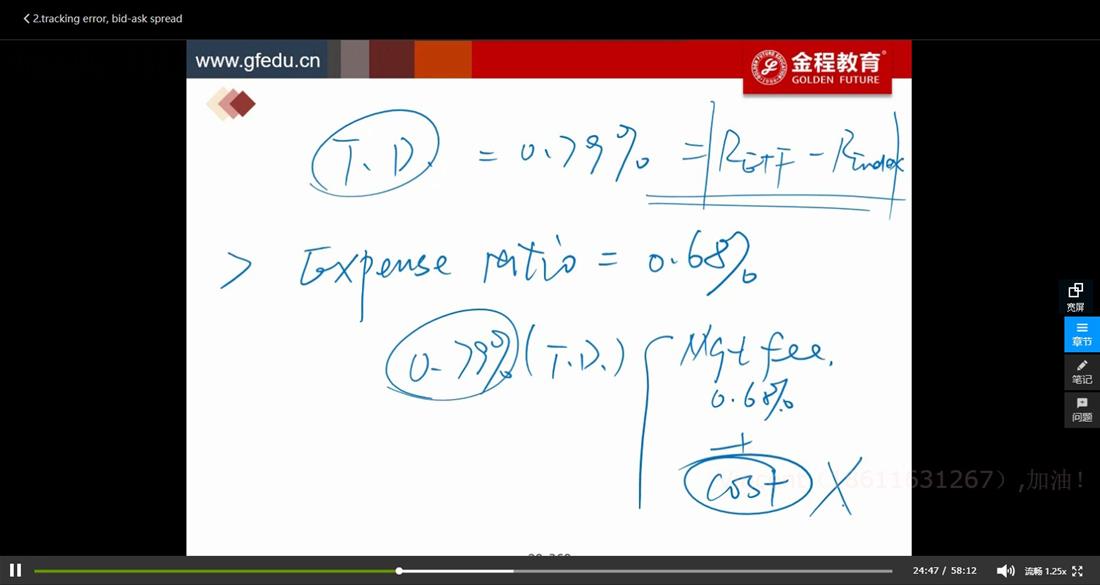 2.tracking error, bid-ask spread
www.gfedu.cn
金程教育®
GOLDEN FUTURE
T.D. = 0.79% = |R ETF - R index|
> Expense ratio = 0.68%
0.79% (T.D.) { Mgt fee.
0.68%
+
cost X
宽屏
章节
笔记
问题
611631267）,加油！
24:47 / 58:12
流畅 1.25x